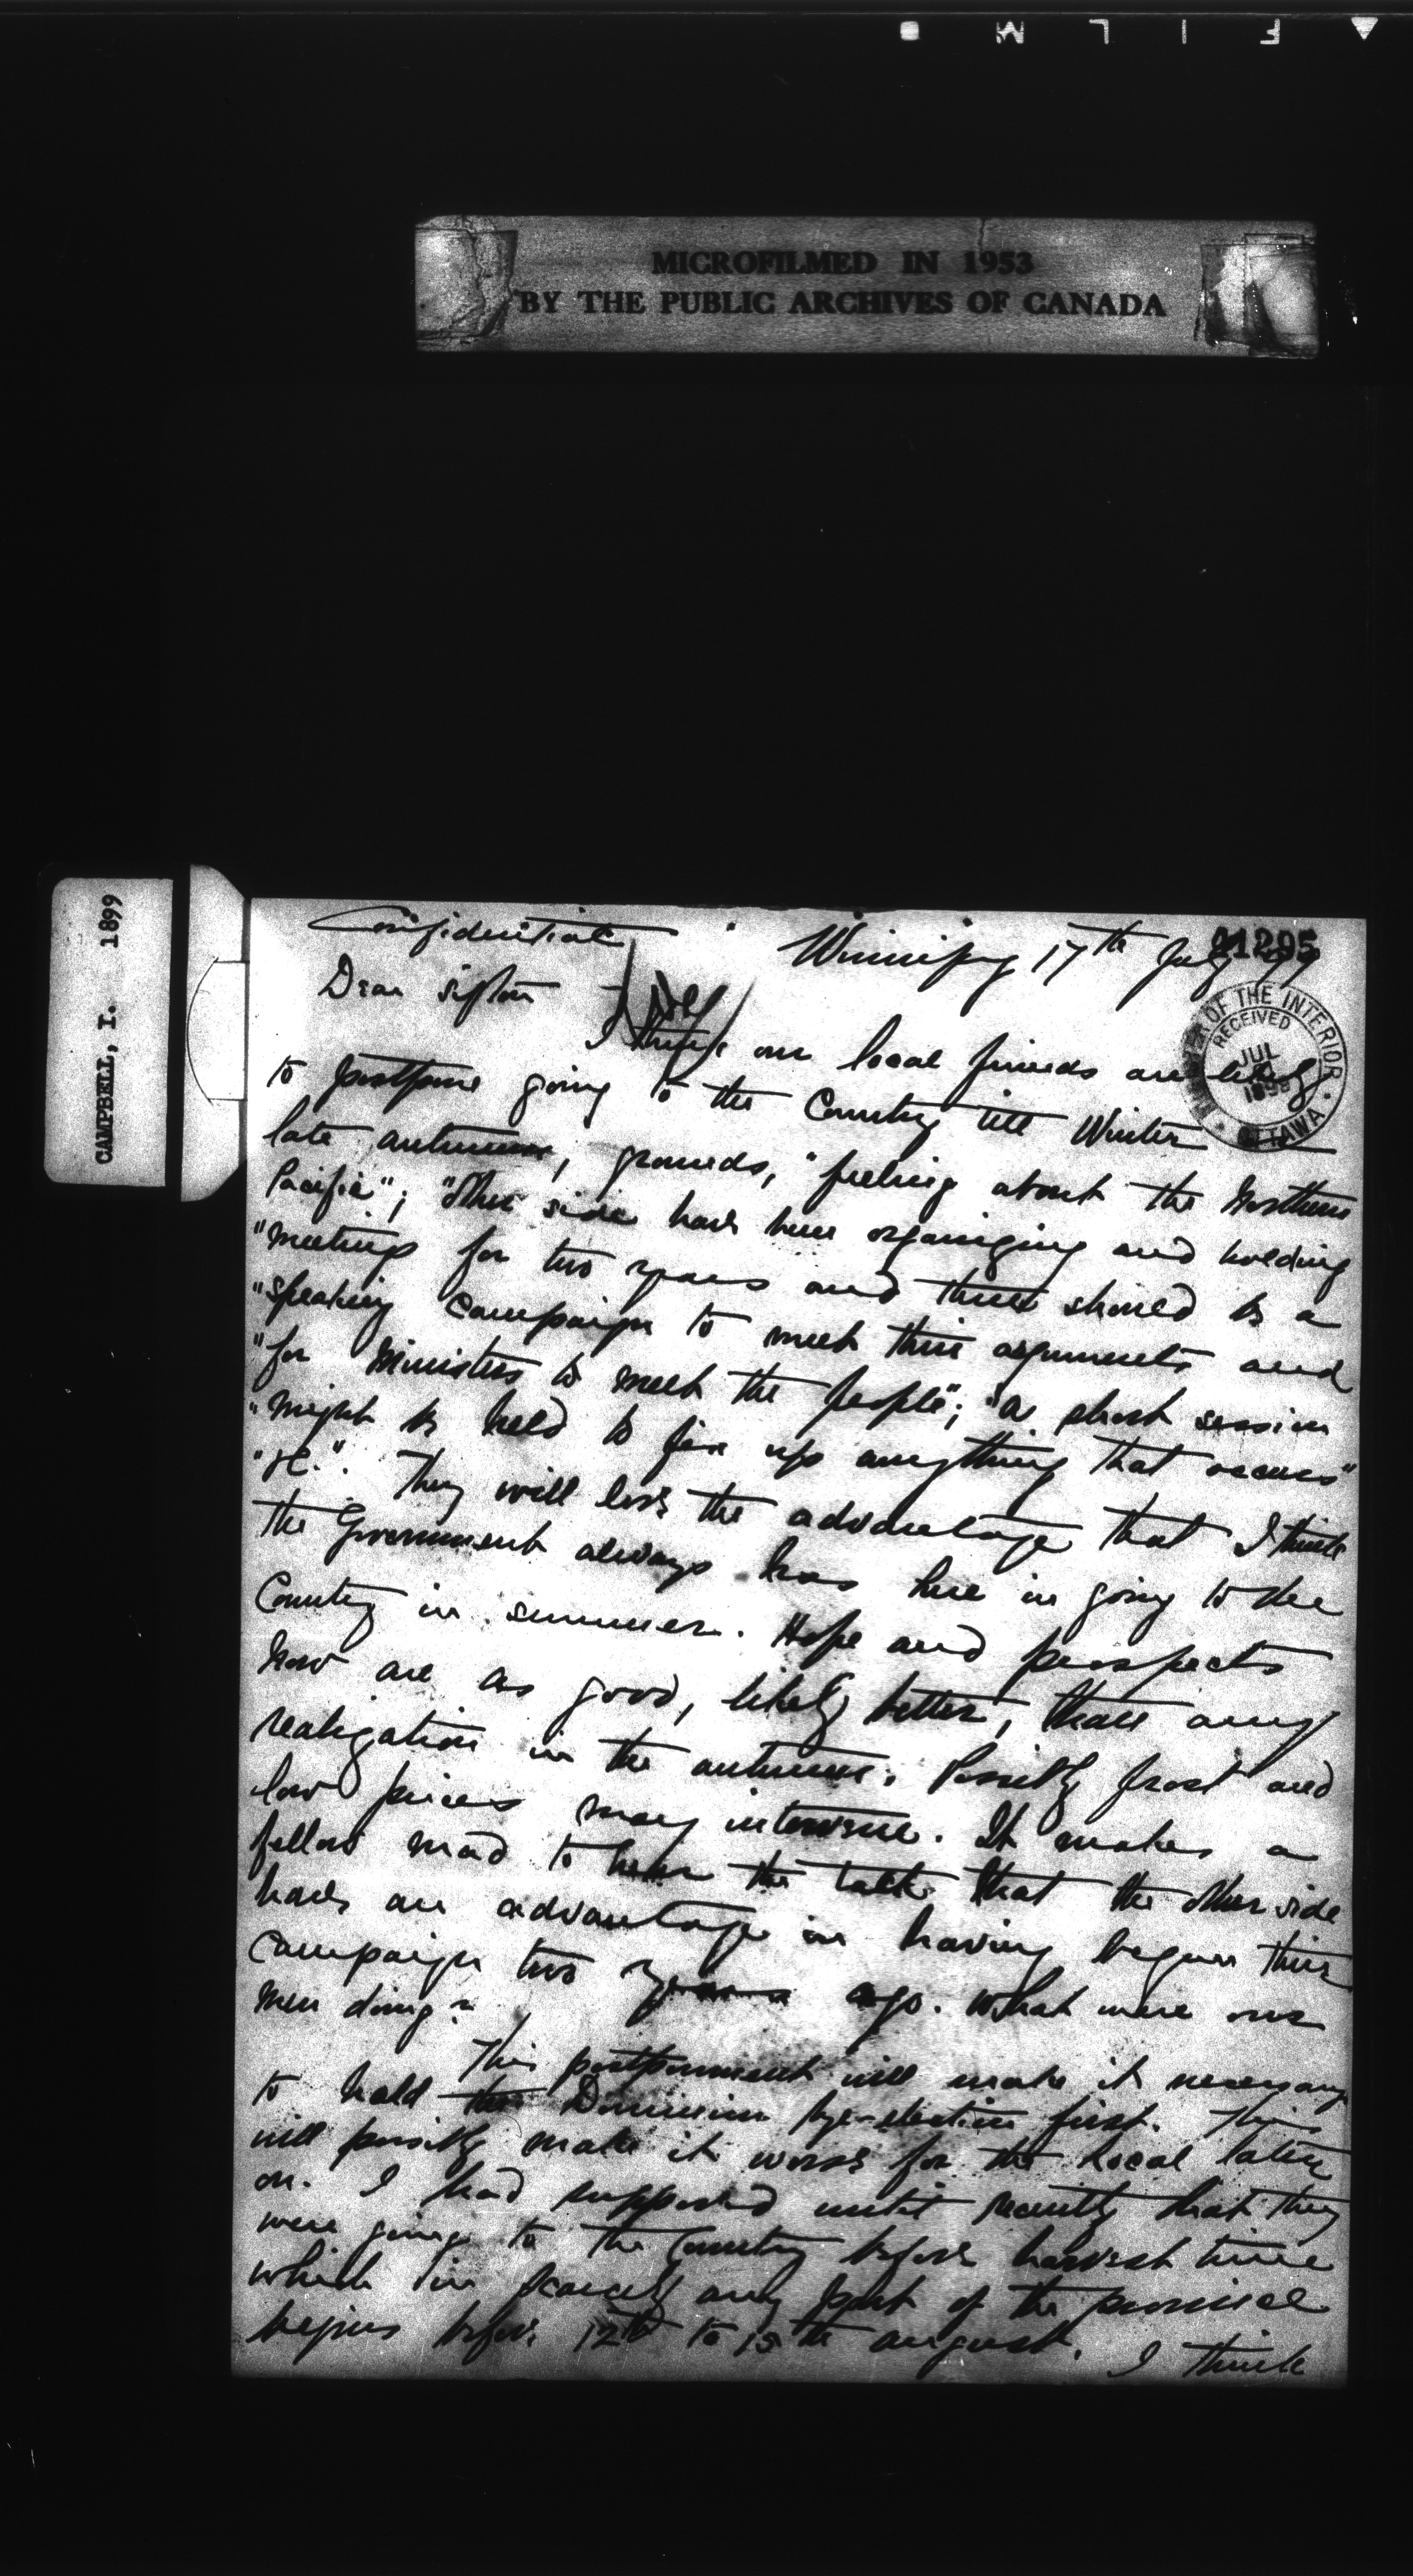 FILM
MICROFILMED IN 1953
BY THE PUBLIC ARCHIVES OF CANADA
CAMPBELL, I. 1899
Confidential
Winnipeg 17th July 99
41295
Dear Sifton
OF THE INTERIOR
RECEIVED
JUL
OTTAWA
I think our local friends are likely
to postpone going to the Country till Winter
late autumn, grounds, "feeling about the Northern
Pacific"; "Other side have been organizing and holding
"meetings for two years and there should be a
"speaking campaign to meet their arguments and
"for Ministers to meet the people"; "a short session
"might be held to fix up anything that occurs"
"&c.". They will lose the advantage that I think
the Government always has here in going to the
Country in summer. Hope and prospects
now are as good, likely better, than any
realization in the autumn. Possibly frost and
low prices may intervene. It makes a
fellow mad to hear the talk that the other side
have an advantage in having begun their
campaign two years ago. What were our
men doing?
This postponement will make it necessary
to hold the Dominion bye-election first. This
will possibly make it worse for the Local later
on. I had supposed until recently that they
were going to the Country before harvest time
which in scarcely any part of the province
begins before 12th to 15th august. I think